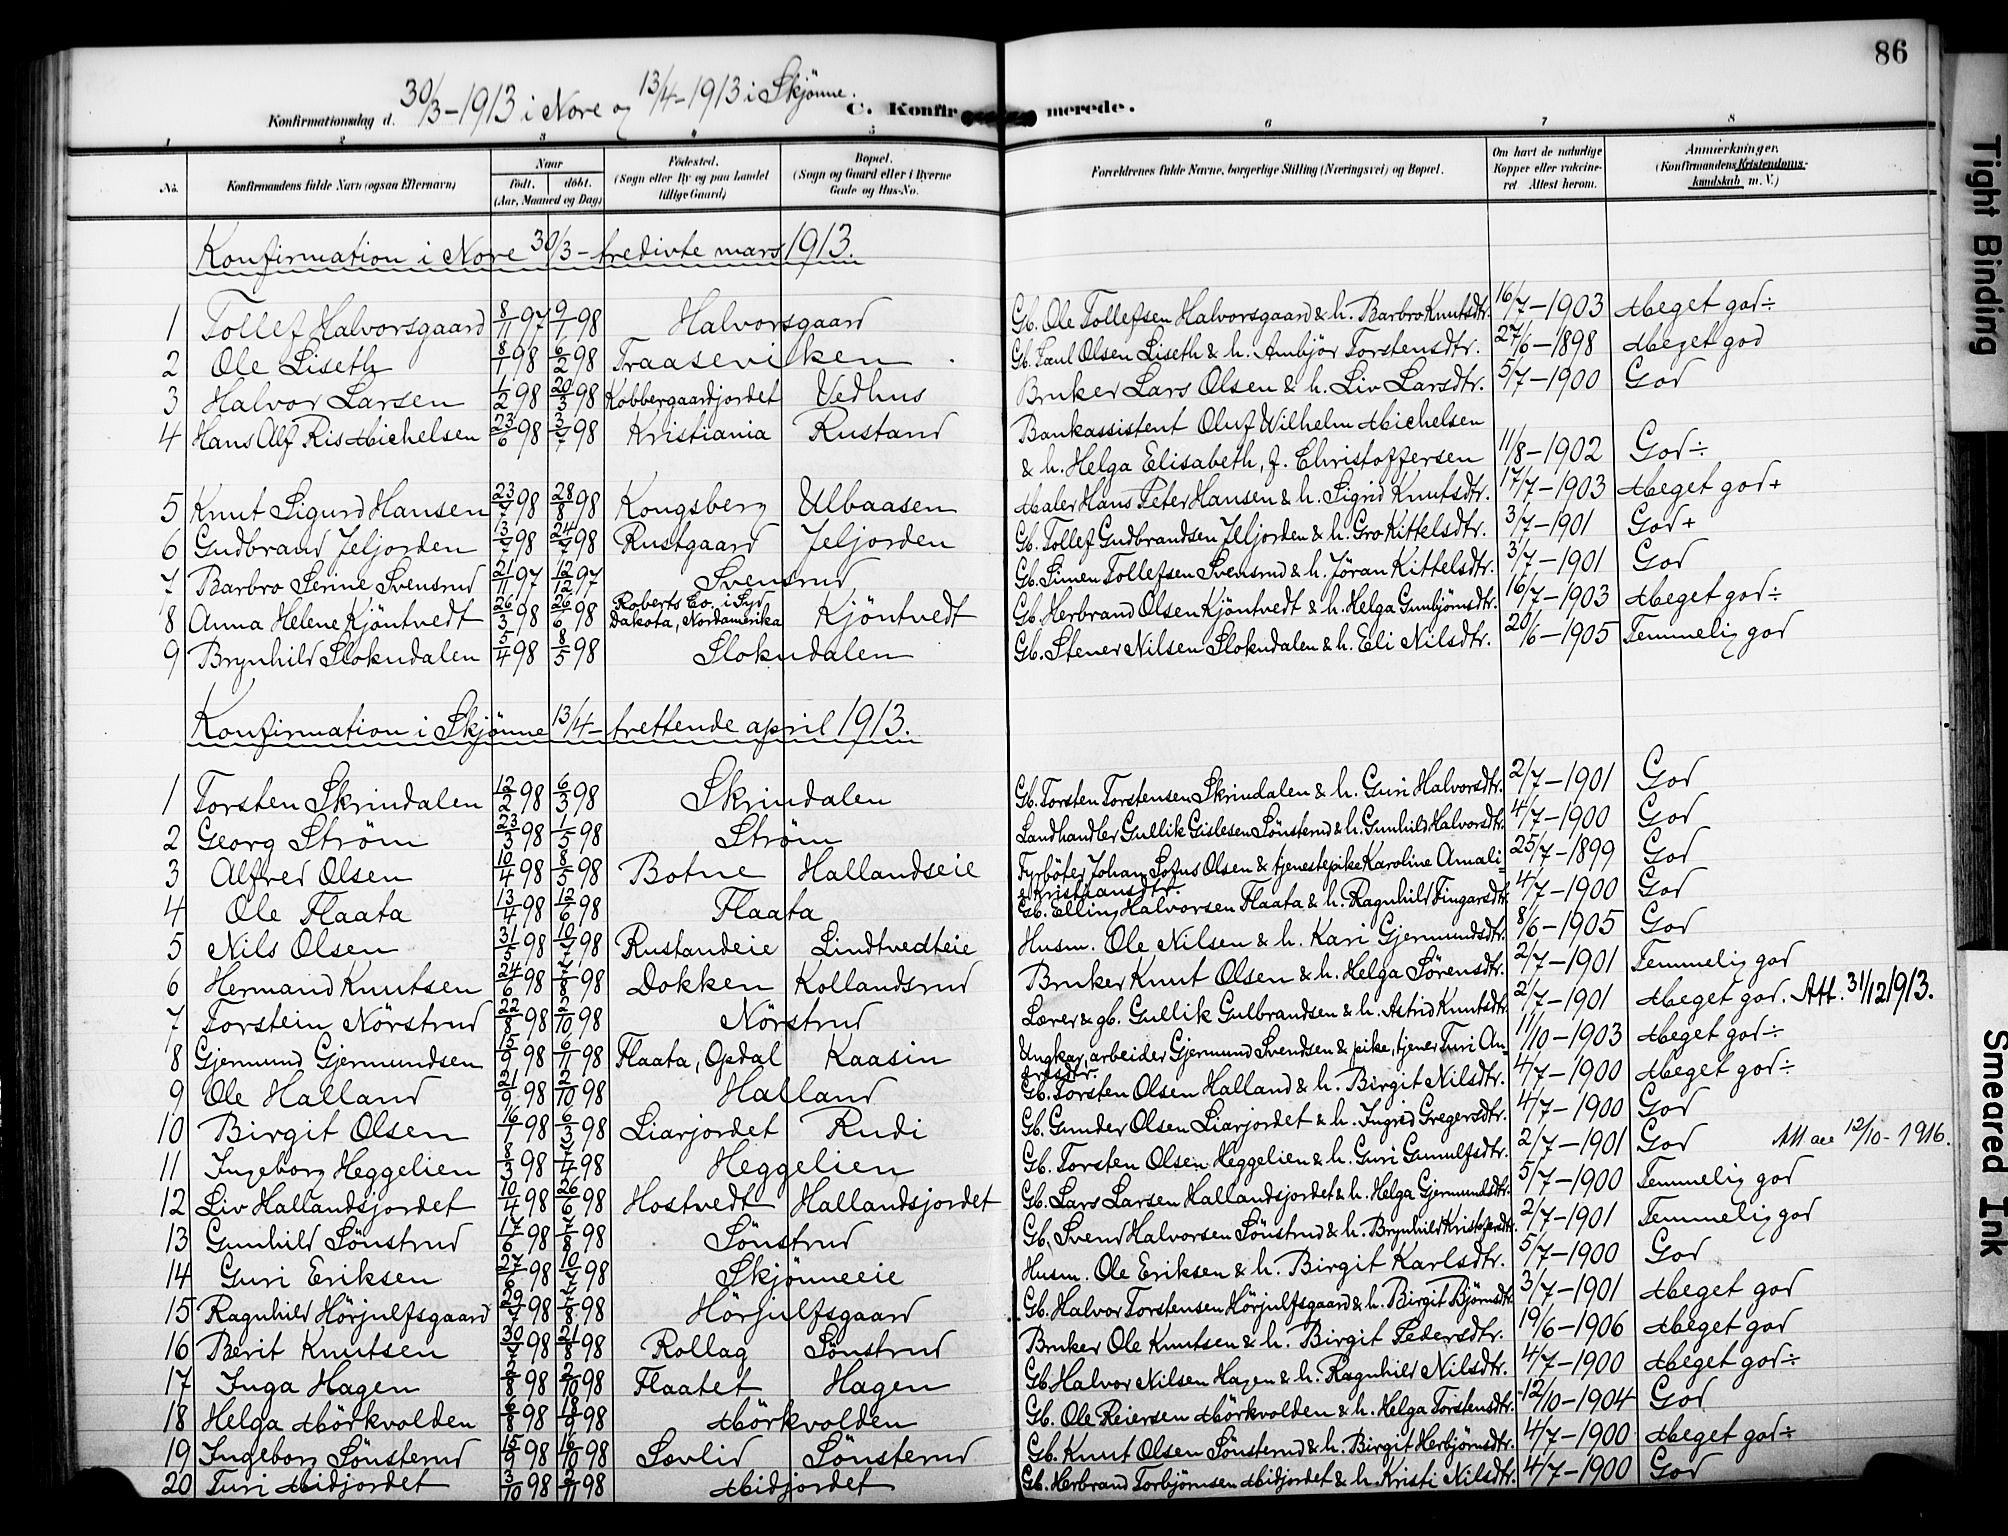 86
Konfirmationsdag d. 30/3-1913 i Nore og 13/4-1913 i Skjønne.
C. Konfirmerede.
1 2 3 4 5 6 7 8
No. Konfirmandens fulde Navn (ogsaa Efternavn) Naar Født. døbt. (Aar, Maaned og Dag) Fødested. (Sogn eller By og paa Landet tillige Gaard) Bopæl. (Sogn og Gaard eller i Byerne Gade og Hus-No. Forældrenes fulde Navne, borgerlige Stilling (Næringsvei) og Bopæl. Om havt de naturlige Kopper eller vaccineret Attest herom. Anmærkninger. (Konfirmandens Kristendomskundskab m. V.)
Konfirmation i Nore 30/3 - tredivte mars 1913.
1 Tollef Halvorsgaard 8/11 97 9/1 98 Halvorsgaard Gb. Ole Tollefsen Halvorsgaard & h. Barbro Knutsdtr. 16/7-1903 Meget god ÷
2 Ole Liseth 8/1 98 6/2 98 Traaseviken Gb. Paul Olsen Liseth & h. Ambjør Torstensdtr. 27/6-1898 Meget god
3 Halvor Larsen 1/2 98 20/3 98 Kobbergaardjordet Vedhus Bruker Lars Olsen & h. Liv Larsdtr. 5/7-1900 God
4 Hans Alf Ris Michelsen 23/6 98 3/7 98 Kristiania Rustand Bankassistent Oluf Wilhelm Michelsen
& h. Helga Elisabeth, f. Christoffersen 11/8-1902 God ÷
5 Knut Sigurd Hansen 23/7 98 28/8 98 Kongsberg Ulbaasen Maler Hans Peter Hansen & h. Sigrid Knutsdtr. 17/7-1903 Meget god +
6 Gudbrand Jeljorden 13/7 98 24/7 98 Rustgaard Jeljorden Gb. Tollef Gudbrandsen Jeljorden & h. Gro Kittelsdtr. 3/7-1901 God +
7 Barbro Serine Svensrud 21/11 97 12/12 97 Svensrud Gb. Simen Tollefsen Svensrud & h. Jøran Kittelsdtr. 3/7-1901 God
8 Anna Helene Kjøntvedt 26/3 98 26/6 98 Roberts Co. i Syd Dakota, Nordamerika Kjøntvedt Gb. Herbrand Olsen Kjøntvedt & h. Helga Gunbjørnsdtr. 16/7-1903 Meget god ÷
9 Brynhild Slokudalen 5/4 98 8/5 98 Slokudalen Gb. Stener Nilsen Slokudalen & h. Eli Nilsdtr. 20/6-1905 Temmelig god
Konfirmation i Skjønne 13/4 - trettende april 1913.
1 Torsten Skrindalen 12/2 98 6/3 98 Skrindalen Gb. Torsten Torstensen Skrindalen & h. Guri Halvorsdtr. 2/7-1901 God
2 Georg Strøm 23/3 98 1/5 98 Strøm Landhandler Gullik Gislesen Sønsterud & h. Gunhild Halvorsdtr. 4/7-1900 God
3 Alfred Olsen 10/4 98 8/5 98 Botne Hallandseie Fyrbøter Johan Sofus Olsen & tjenestepike Karoline Amali- 25/7-1899 God
a Kristiansdtr.
4 Ole Flaata 13/4 98 12/6 98 Flaata Gb. Elling Halvorsen Flaata & h. Ragnhild Fingarsdtr. 4/7-1900 God
5 Nils Olsen 31/5 98 10/7 98 Rustandeie Lindtvedteie Husm. Ole Nilsen & h. Kari Gjermundsdtr. 8/6-1905 God
6 Hermand Knutsen 24/6 98 7/8 98 Dokken Kollandsrud Bruker Knut Olsen & h. Helga Sørensdtr. 2/7-1901 Temmelig god
7 Torstein Nørstrud 22/8 98 2/10 98 Nørstrud Lærer & gb. Gullik Gulbrandsen & h. Astrid Knutsdtr. 2/7-1901 Meget god. Att. 31/12 1913.
8 Gjermund Gjermundsen 15/9 98 6/11 98 Flaata, Opdal Kaasin Ungkar, arbeider Gjermund Svendsen & pike, tjener Turi An- 11/10-1903 Meget god ÷
dresdtr.
9 Ole Halland 21/9 98 2/10 98 Halland Gb. Torsten Olsen Halland & h. Birgit Nilsdtr. 4/7-1900 Meget god ÷
10 Birgit Olsen 16/1 98 6/3 98 Liarjordet Rudi Gb. Gunder Olsen Liarjordet & h. Ingrid Gregersdtr. 4/7-1900 God
11 Ingeborg Heggelien 8/3 98 7/4 98 Heggelien Gb. Torsten Olsen Heggelien & h. Guri Gunulfsdtr. 2/7-1901 God Att 12/10-1916.
12 Liv Hallandsjordet 10/4 98 26/6 98 Hostvedt Hallandsjordet Gb. Lars Larsen Hallandsjordet & h. Helga Gjermundsdtr. 5/7-1900 Temmelig god
13 Gunhild Sønstrud 17/6 98 7/8 98 Sønstrud Gb. Svend Halvorsen Sønstrud & h. Brynhild Kristofersdtr. 2/7-1901 Temmelig god
14 Guri Eriksen 27/6 98 10/7 98 Skjønneeie Husm. Ole Eriksen & h. Birgit Karlsdtr. 5/7-1900 God
15 Ragnhild Hørjulfsgaard 29/7 98 7/8 98 Hørjulfsgaard Gb. Halvor Torstensen Hørjulfsgaard & h. Birgit Bjørnsdtr. 3/7-1901 Meget god
16 Berit Knutsen 30/7 98 21/8 98 Rollag Sønstrud Bruker Ole Knutsen & h. Birgit Pedersdtr. 19/6-1906 Meget god
17 Inga Hagen 2/8 98 2/10 98 Flaatet Hagen Gb. Halvor Nilsen Hagen & h. Ragnhild Nilsdtr. 4/7-1900 Meget god ÷
18 Helga Mørkvolden 6/8 98 18/9 98 Mørkvolden Gb. Ole Reiersen Mørkvolden & h. Helga Torstensdtr. 12/10-1904 God
19 Ingeborg Sønsterud 15/9 98 16/10 98 Sovlid Sønsterud Gb. Knut Olsen Sønsterud & h. Birgit Herbjørnsdtr. 4/7-1900 Meget god ÷
20 Turi Midjordet 3/10 98 2/11 98 Midjordet Gb. Herbrand Torbjørnsen Midjordet & h. Kristi Nilsdtr. 4/7-1900 God
Tight Binding
Smeared Ink